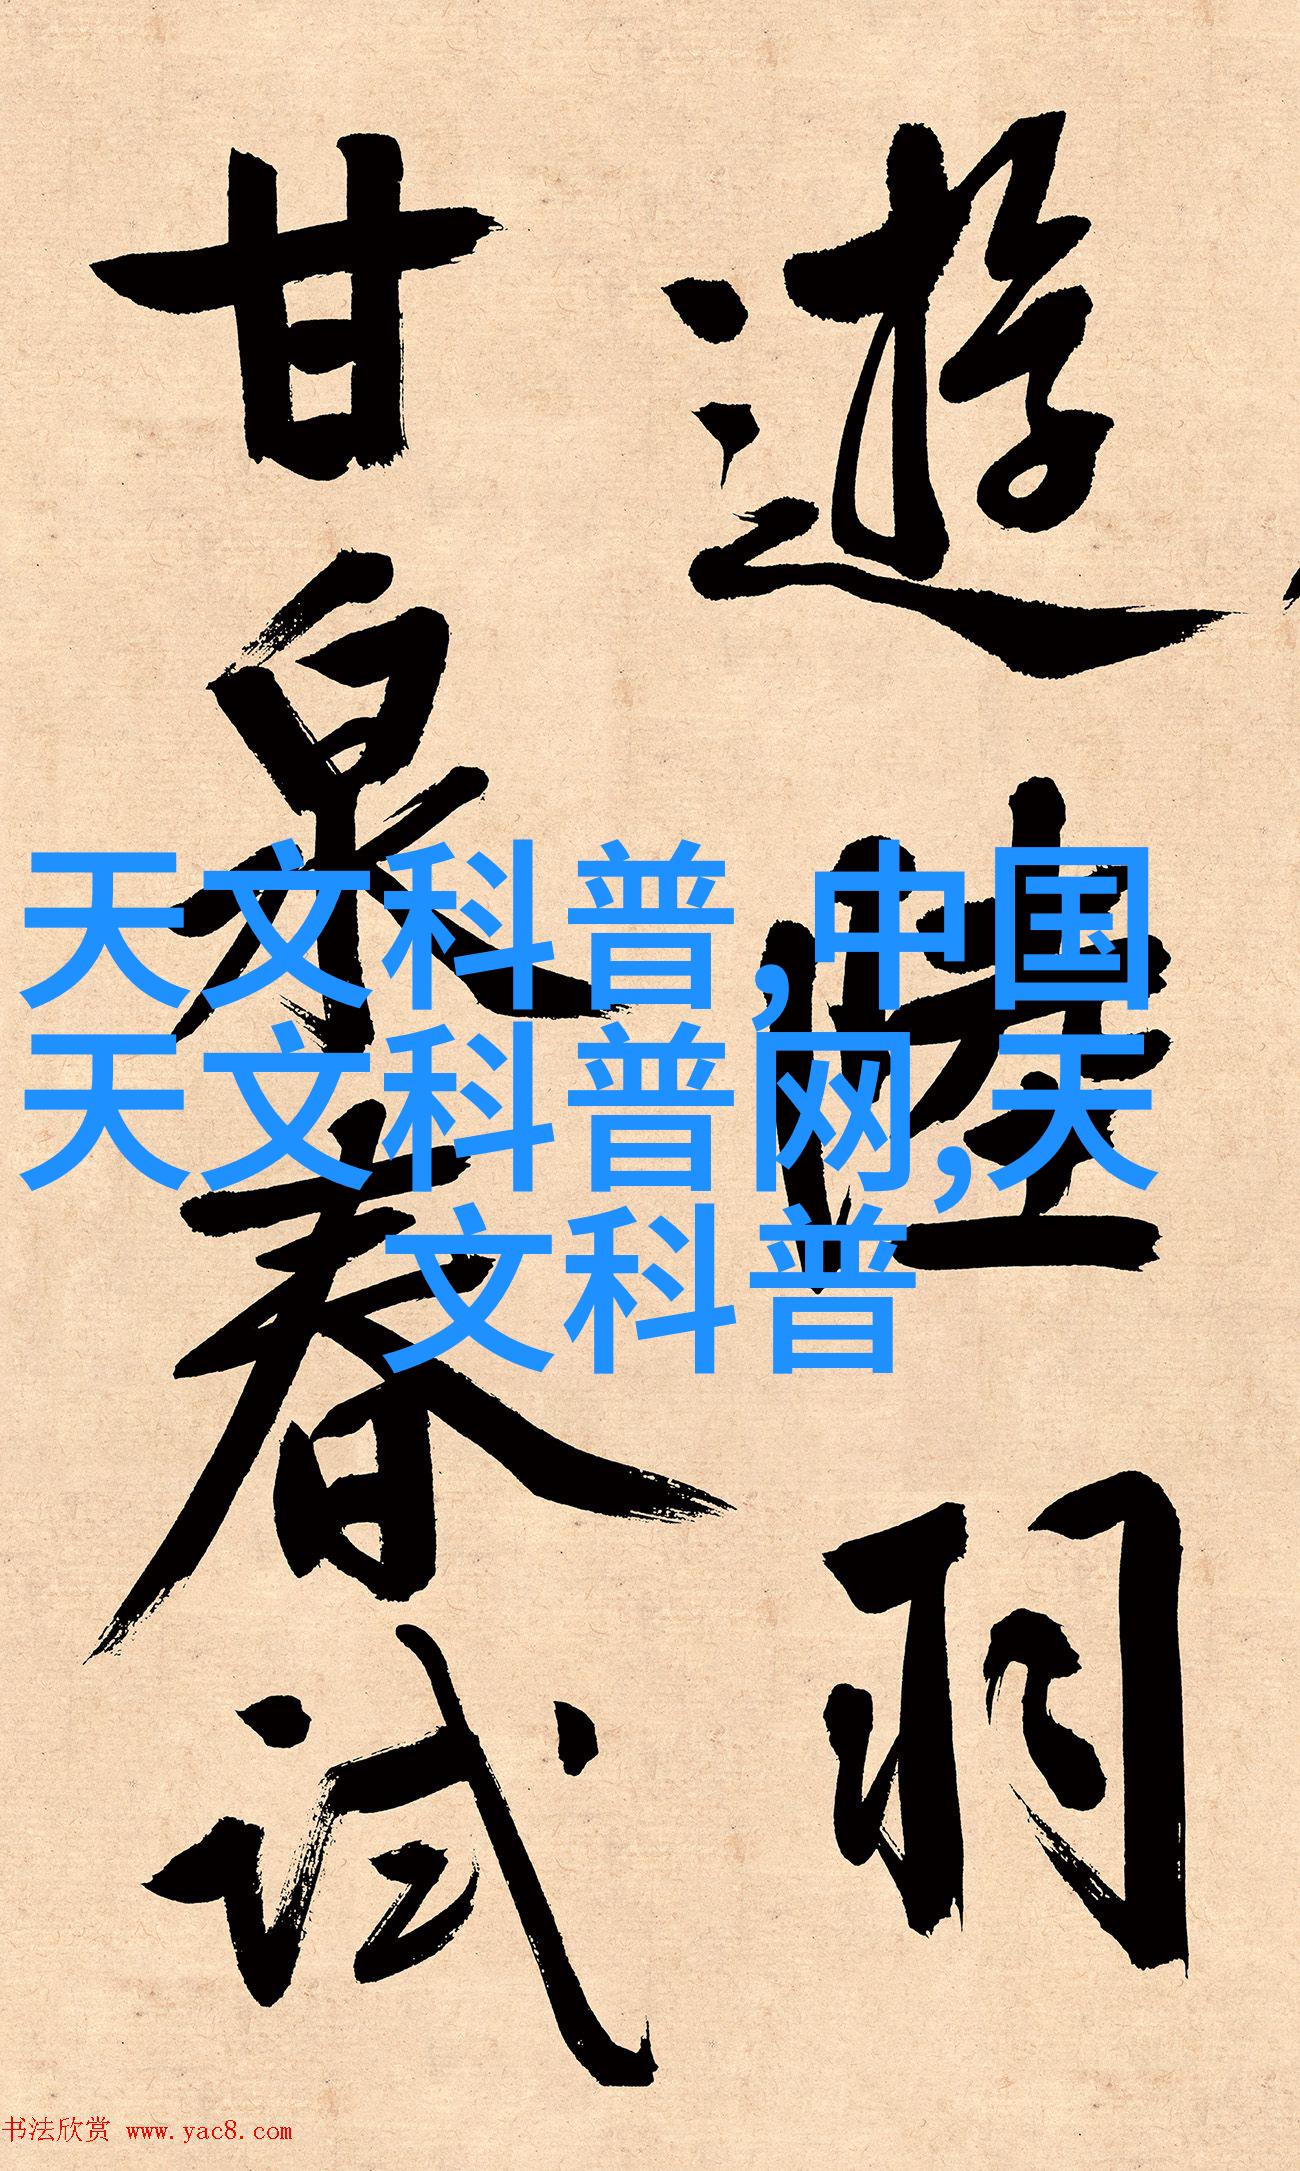 遊陸羽
甘泉春試
天文科普,中国
天文科普网,天
文科普
书法欣赏 www.yac8.com